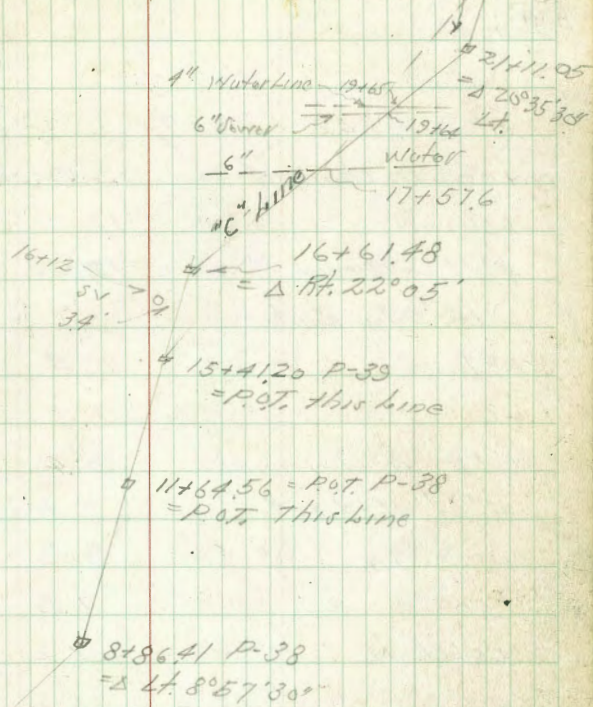 21+11.05
= Δ 20°35'30"
Lt.
4" Water Line
19+65
6" Sewer
19+64
6" Water
17+57.6
"C" Line
16+61.48
= Δ Rt. 22°05'
16+12
SV
34'
15+41.20 P-39
=P.O.T. this Line
11+64.56 = P.O.T. P-38
=P.O.T. This Line
8+86.41 P-38
=Δ Lt. 8°57'30"